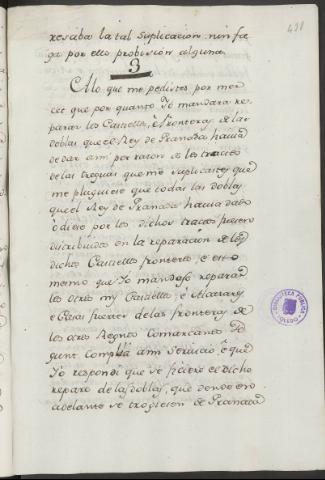 491
resaba la tal Suplicacion nin fa
ga por ello probision alguna
3
A lo que me pedistes por mer
cet que por quanto Yo mandara re
parar los Castiellos, è fronteras de las
doblas que el Rey de Granada havia
de dar a mi por razon de los tractos
de las treguas que me suplicastes que
me plaguiese que todas las doblas
que el Rey de Granada havia dado
ò diere por los dichos tractos fuesen
distribuidas en la reparacion de los
dichos Castiellos fronteros, è eso
mesmo que Yo mandase reparar
los otros mis Castiellos, è Alcazares
è Casas fuertes de las fronteras de
los otros Regnos comarcanos se
gunt cumplia a mi servicio è que
Yo respondi que se ficiere el dicho
reparo de las doblas, que dende en
adelante se trogiesen de Granada
BIBLIOTECA PUBLICA
TOLEDO